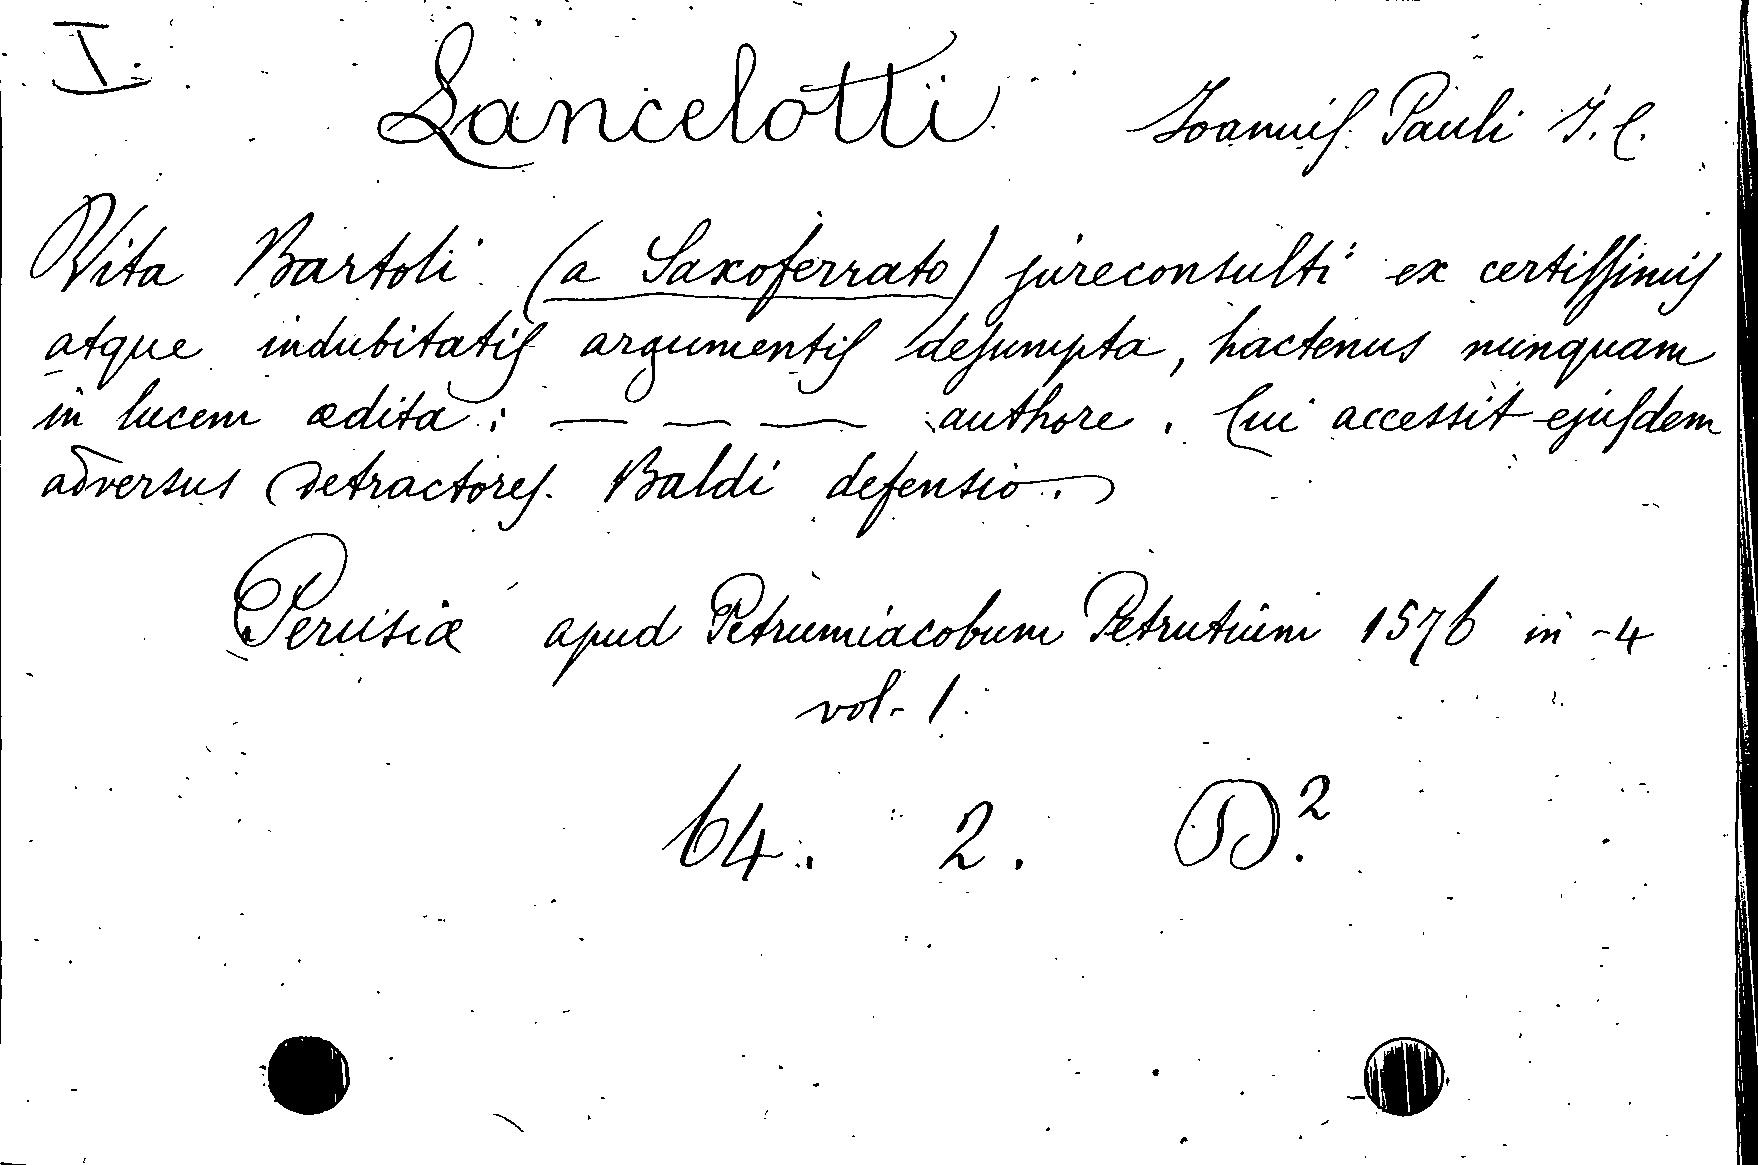 I.
Lancelotti Joannis Pauli J. C.
Vita Bartoli (a Saxoferrato) jureconsulti ex certissimis
atque indubitatis argumentis desumpta, hactenus nunquam
in lucem ædita : — — — authore. Cui accessit ejusdem
adversus detractores Baldi defensio.
Perusiæ apud Petrumiacobum Petrutium 1576 in-4
vol. 1
64. 2. D².